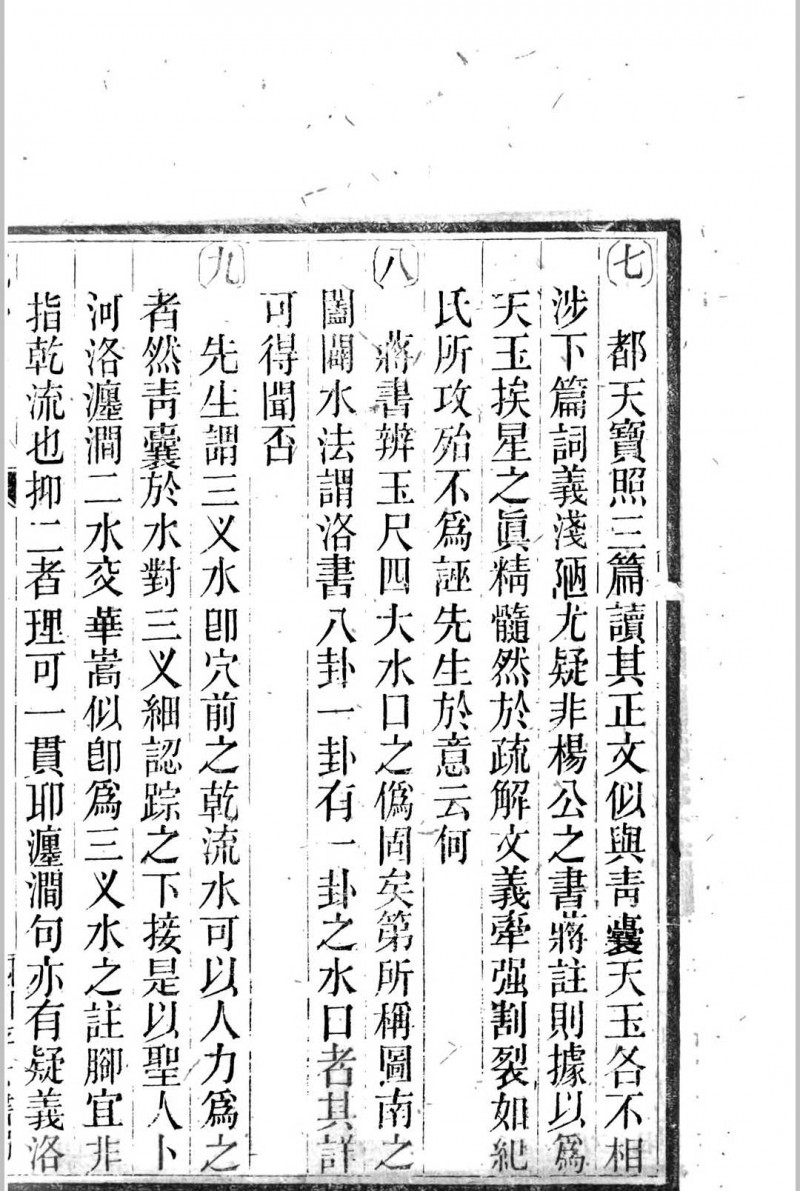 七
都天寶照三篇讀其正文似與靑囊天玉各不相
涉下篇詞義淺陋尤疑非楊公之書蔣註則據以爲
天玉挨星之眞精髓然於疏解文義牽强割裂如紀
氏所攻殆不爲誣先生於意云何
八
蔣書辨玉尺四大水口之僞固矣第所稱圖南之
闔闢水法謂洛書八卦一卦有一卦之水口者其詳
可得聞否
九
先生謂三义水卽穴前之乾流水可以人力爲之
者然靑囊於水對三义細認踪之下接是以聖人卜
河洛瀍澗二水交華嵩似卽爲三义水之註腳宜非
指乾流也抑二者理可一貫耶瀍澗句亦有疑義洛